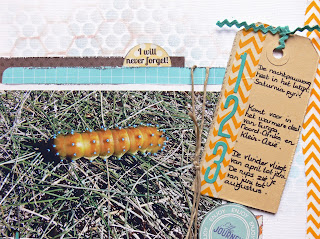 I will
never forget!
De nachtpauwoog
heet in het latijn
Saturnia pyri
1
2
3
Komt voor in
het warmere deel
van Europa,
Noord Afrika en
Klein-Azië.
De vlinder vliegt
van april tot juli
De rups zie je
van juni tot
augustus
JOURNEY